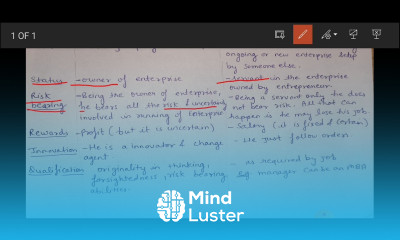 1 OF 1
ongoing or new enterprise setup
by someone else.
Status - owner of enterprise - Servant in the enterprise
owned by entrepreneur
Risk - Being the owner of enterprise, - Being a servant only he does
bearing he bears all the risk & uncertainty not bear risk. All that can
involved in running of Enterprise happen is he may lose his job.
Rewards - Profit (but it is uncertain) - Salary (it is fixed & certain)
Innovation - He is a innovator & change - He just follow orders.
agent
Qualification originality in thinking, - as required by job
foresightedness, risk bearing manager can be an MBA
abilities.
Mind
Luster